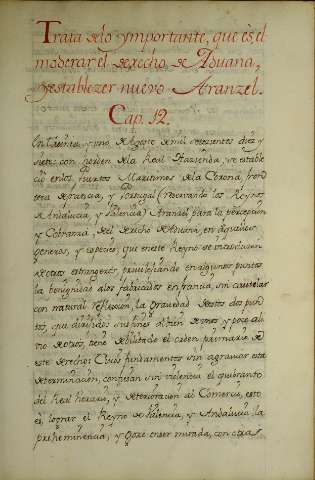 Trata de lo ymportante, que es, el
moderar el derecho de Aduana,
y establezer nuevo Aranzel.
Cap. 12.
En treinta y uno de Agosto de mil setezientos diez y
siete con horden de la Real Hazienda, se estable
ció en los puertos Maritimos de la Corona, fron
tera de Francia, y Portugal (reservando los Reynos
de Andalucia, y Valencia) Aranzel para la percepcion
y Cobranza, del derecho de Aduana, en aquellos
generos, y especies, que en este Reyno se introducen
de otros estrangeros, privilejiando en algunos puntos
la benignidad a los fabricados en francia, sin cautelar
con natural reflexion, la gravedad de estos dos pun
tos, que
tiene debilitado el orden primario de
este derecho: Cuios fundamentos sin agraviar esta
determinacion, confiesan sin violencia el quebranto
del Real herario, y deterioracion del Comercio, esto
es, lograr el Reyno de Valencia, y Andalucia, la
preheminencia, y Goze en ser mirada, con otras